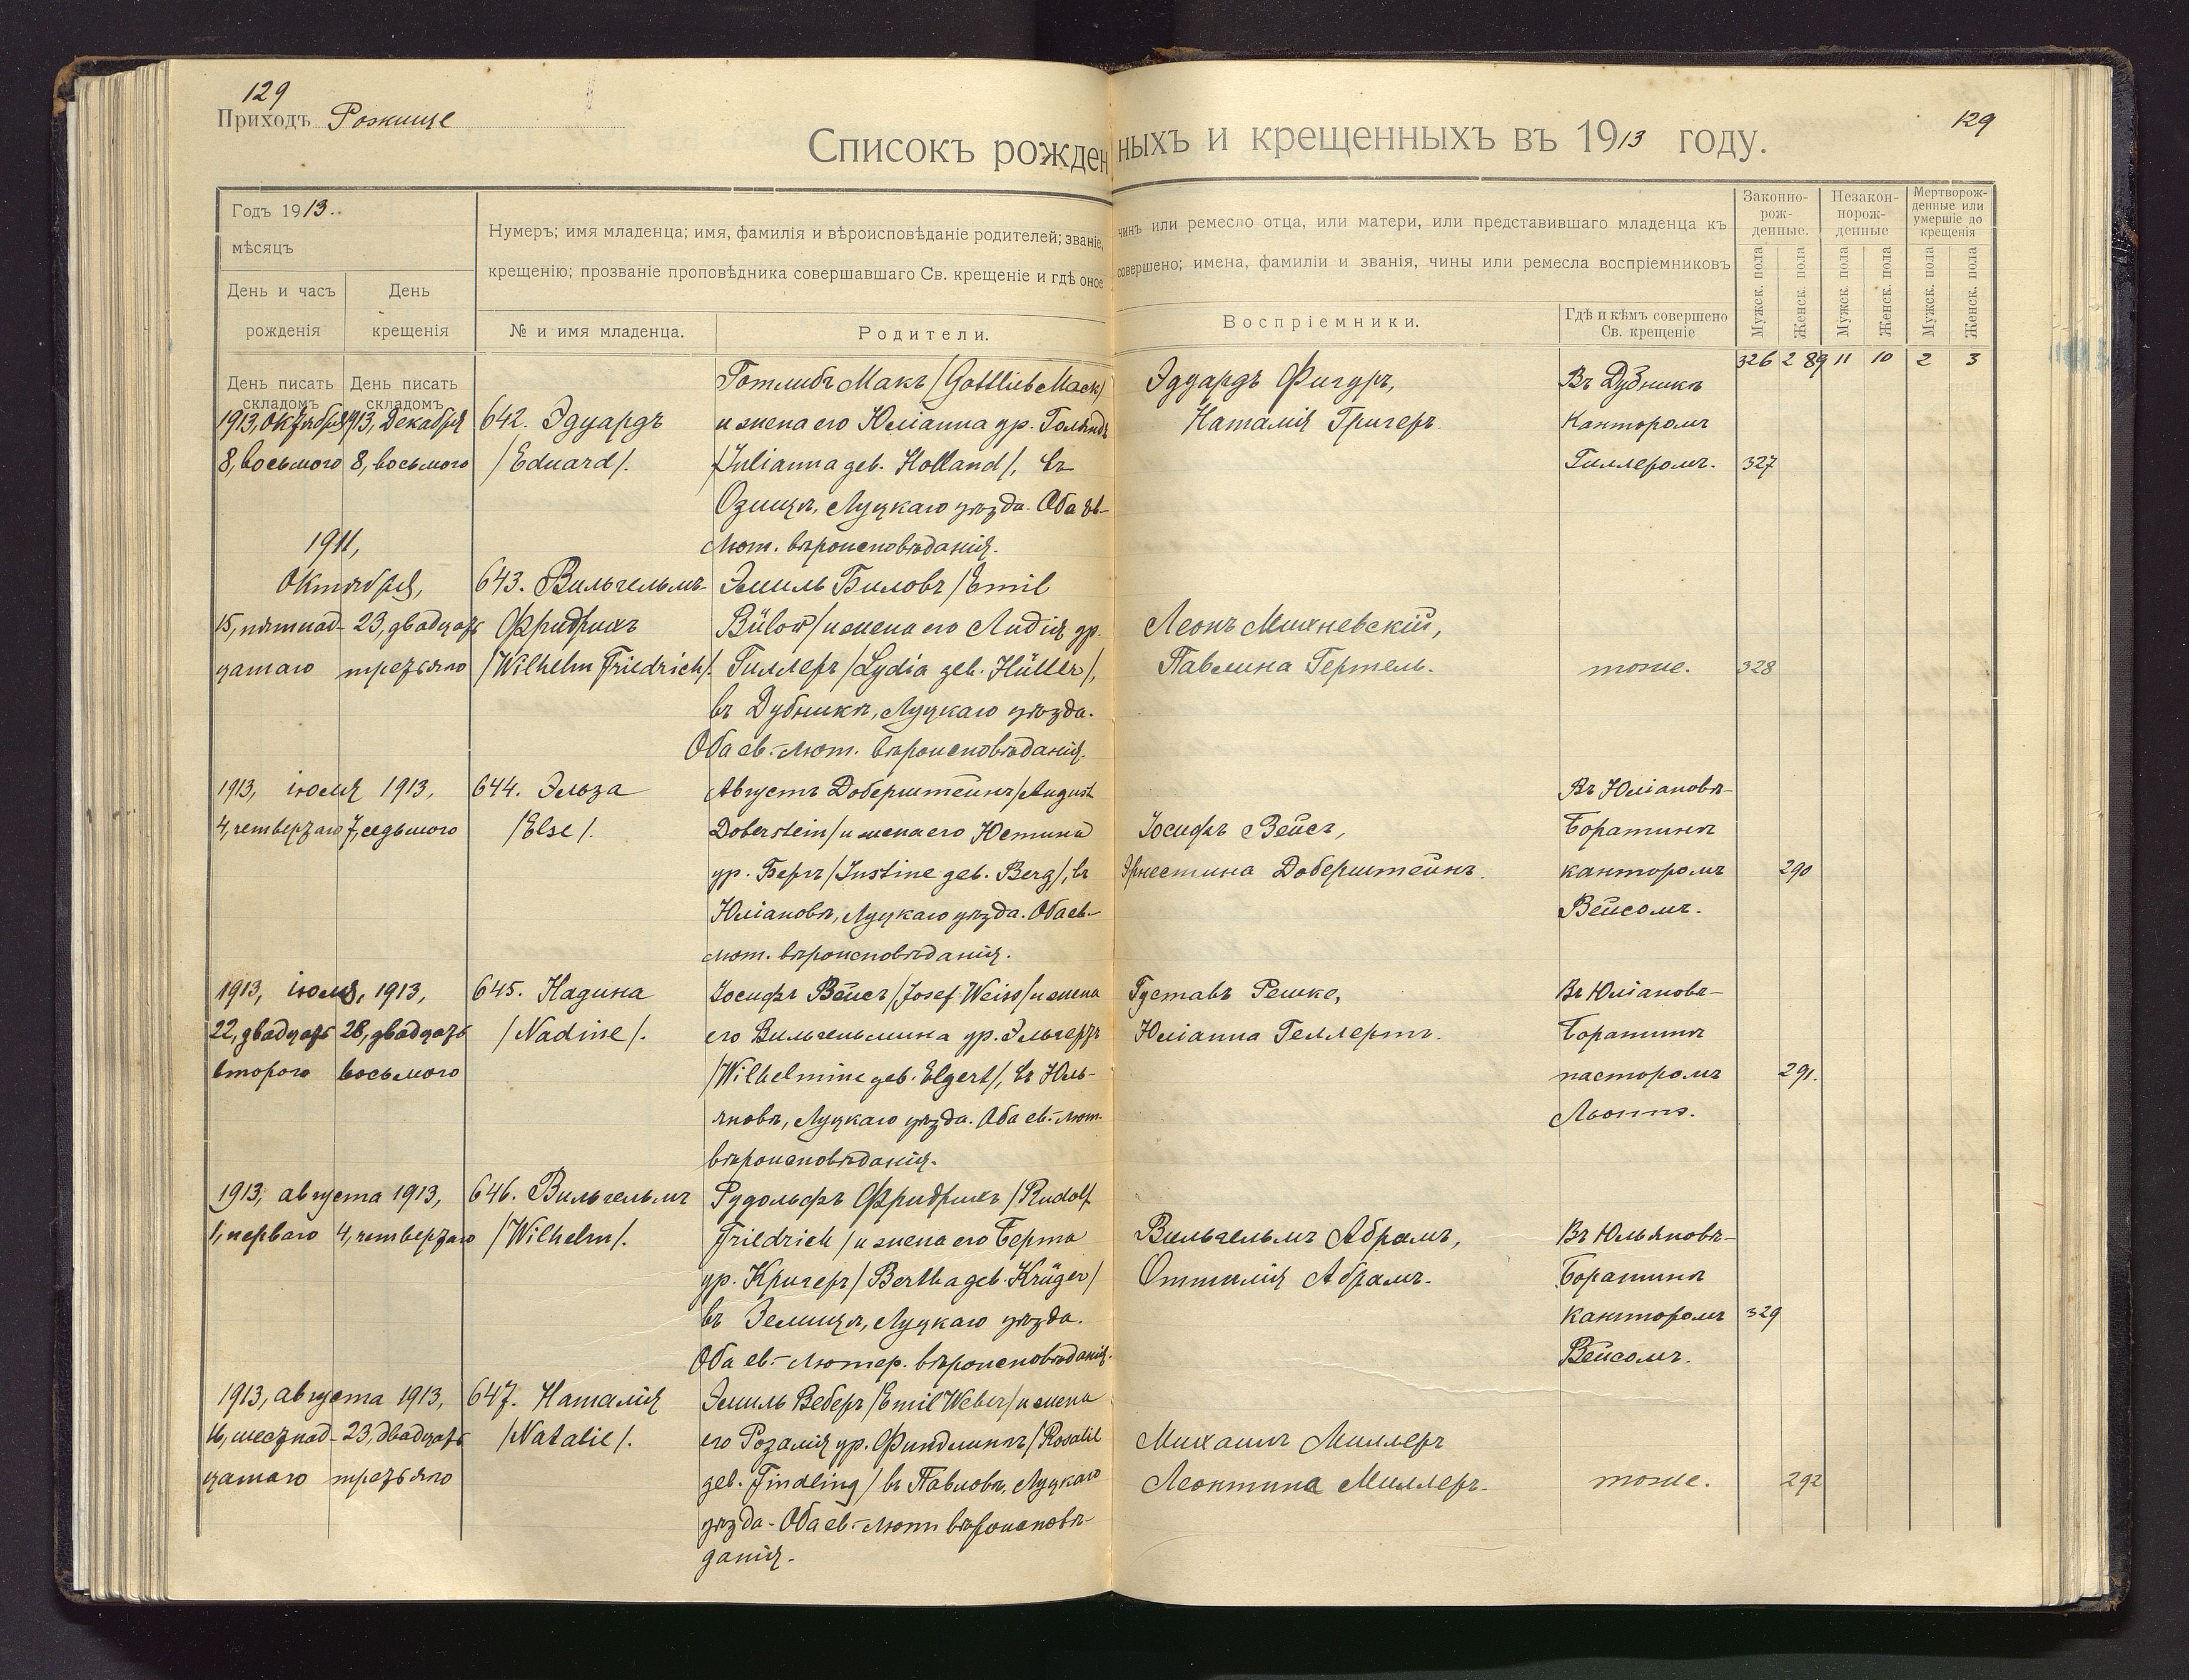 129
Приходъ Рожище
129
Списокъ рожденныхъ и крещенныхъ въ 1913 году.
Годъ 1913.
мѣсяцъ
День и часъ
рожденія
День
крещенія
Нумеръ; имя младенца; имя, фамилія и вѣроисповѣданіе родителей; званіе, чинъ или ремесло отца, или матери, или представившаго младенца къ
крещенію; прозваніе проповѣдника совершавшаго Св. крещеніе и гдѣ оное совершено; имена, фамиліи и званія, чины или ремесла воспріемниковъ
№ и имя младенца.
Родители.
Воспріемники.
Гдѣ и кѣмъ совершено
Св. крещеніе
Законно-
рож-
денные.
Незакон-
норож-
денные
Мертворож-
денные или
умершіе до
крещенія
Мужск. пола
Женск. пола
Мужск. пола
Женск. пола
Мужск. пола
Женск. пола
326 289 11 10 2 3
День писать
складомъ
День писать
складомъ
1913, Октября
8, восьмого
1913, Декабря
8, восьмого
642. Эдуардъ
/Eduard/.
Готлибъ Макъ /Gottlieb Mack/
и жена его Юліанна ур. Голандъ
/Julianna geb. Holland/, въ
Озищѣ, Луцкаго уѣзда. Оба ев-
лют. вѣроисповѣданія.
Эдуардъ Фигуръ,
Наталія Григеръ.
Въ Дубникѣ
Канторомъ
Гиллеромъ.
327
1911,
Октября,
15, пятнад-
цатаго
23, двадцать
третьяго
643. Вильгельмъ-
Фридрихъ
/Wilhelm Friedrich/.
Эмиль Биловъ /Emil
Bülow/ и жена его Лидія ур.
Гиллеръ /Lydia geb. Hüller/,
въ Дубникѣ, Луцкаго уѣзда.
Оба ев.-лют. вѣроисповѣданія.
Леонъ Михневскій,
Павлина Гертель.
тоже.
328
1913, іюля 1913,
4, четвертаго
7, седьмого
644. Эльза
/Else/.
Августъ Доберштейнъ /August
Doberstein/ и жена его Юстина
ур. Бергъ /Justine geb. Berg/, въ
Юліановѣ, Луцкаго уѣзда. Оба ев.-
лют. вѣроисповѣданія.
Іосифъ Вейсъ,
Эрнестина Доберштейнъ.
Въ Юліановѣ-
Боратинѣ
канторомъ
Вейсомъ.
290
1913, іюля, 1913,
22, двадцать
второго
28, двадцать
восьмого
645. Надина
/Nadine/.
Іосифъ Вейсъ /Josef Weiss/ и жена
его Вильгельмина ур. Эльгертъ
/Wilhelmine geb. Elgert/, въ Юль-
яновѣ, Луцкаго уѣзда. Оба ев.-лют.
вѣроисповѣданія.
Густавъ Решке,
Юліанна Геллертъ.
Въ Юліановѣ-
Боратинѣ
пасторомъ
291.
1913, августа 1913,
1, перваго
4, четвертаго
646. Вильгельмъ
/Wilhelm/.
Рудольфъ Фридрихъ /Rudolf
Friedrich/ и жена его Берта
ур. Кригеръ /Bertha geb. Krüger/
въ Земицѣ, Луцкаго уѣзда.
Оба ев.-лютер. вѣроисповѣданія.
Вильгельмъ Абрамъ,
Оттилія Абрамъ.
Въ Юльяновѣ-
Боратинѣ
канторомъ
Вейсомъ.
329
1913, августа 1913,
16, шестнад-
цатаго
23, двадцать
третьяго
647. Наталія
/Natalie/.
Эмиль Веберъ /Emil Weber/ и жена
его Розалія ур. Финдлингъ /Rosalie
geb. Findling/ въ Павловѣ, Луцкаго
уѣзда. Оба ев.-лют. вѣроисповѣ-
данія.
Михаилъ Миллеръ
Леонтина Миллеръ.
тоже.
292